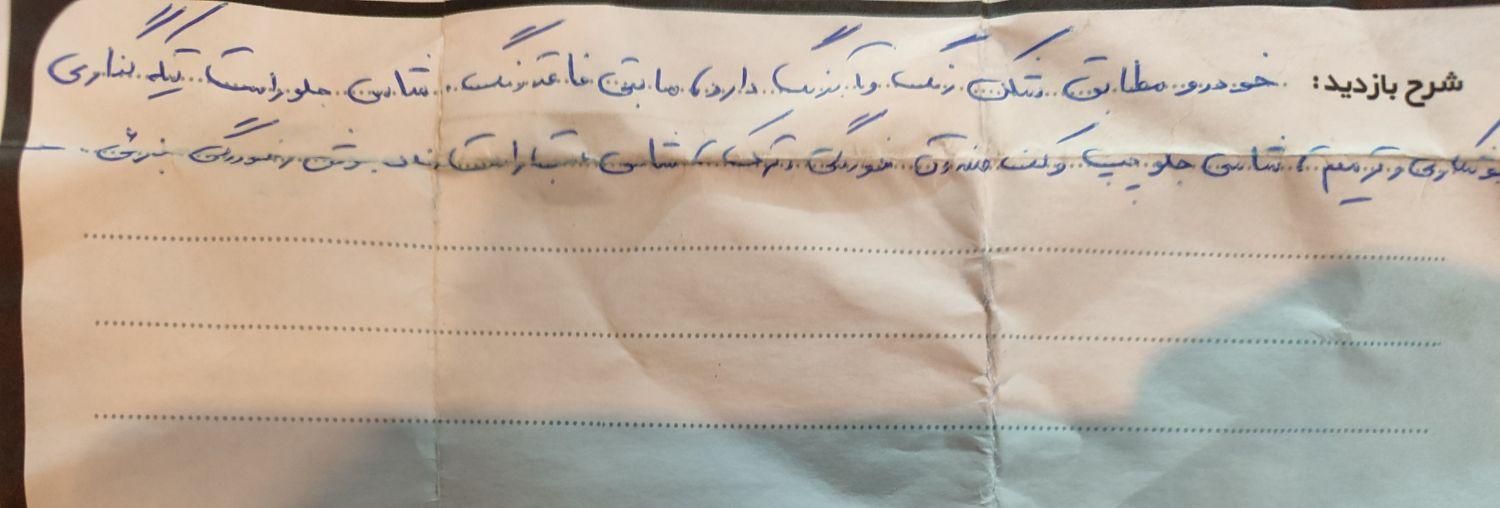 شرح بازدید: خودرو مطابق شکل رنگ و آبرنگ دارد، مابقی فاقد رنگ، شاسی جلو راست تیکه گذاری
جوشکاری و ترمیم، شاسی جلو چپ و کف صندوق خوردگی و ترک، شاسی عقب راست زیر خوردگی جزئی